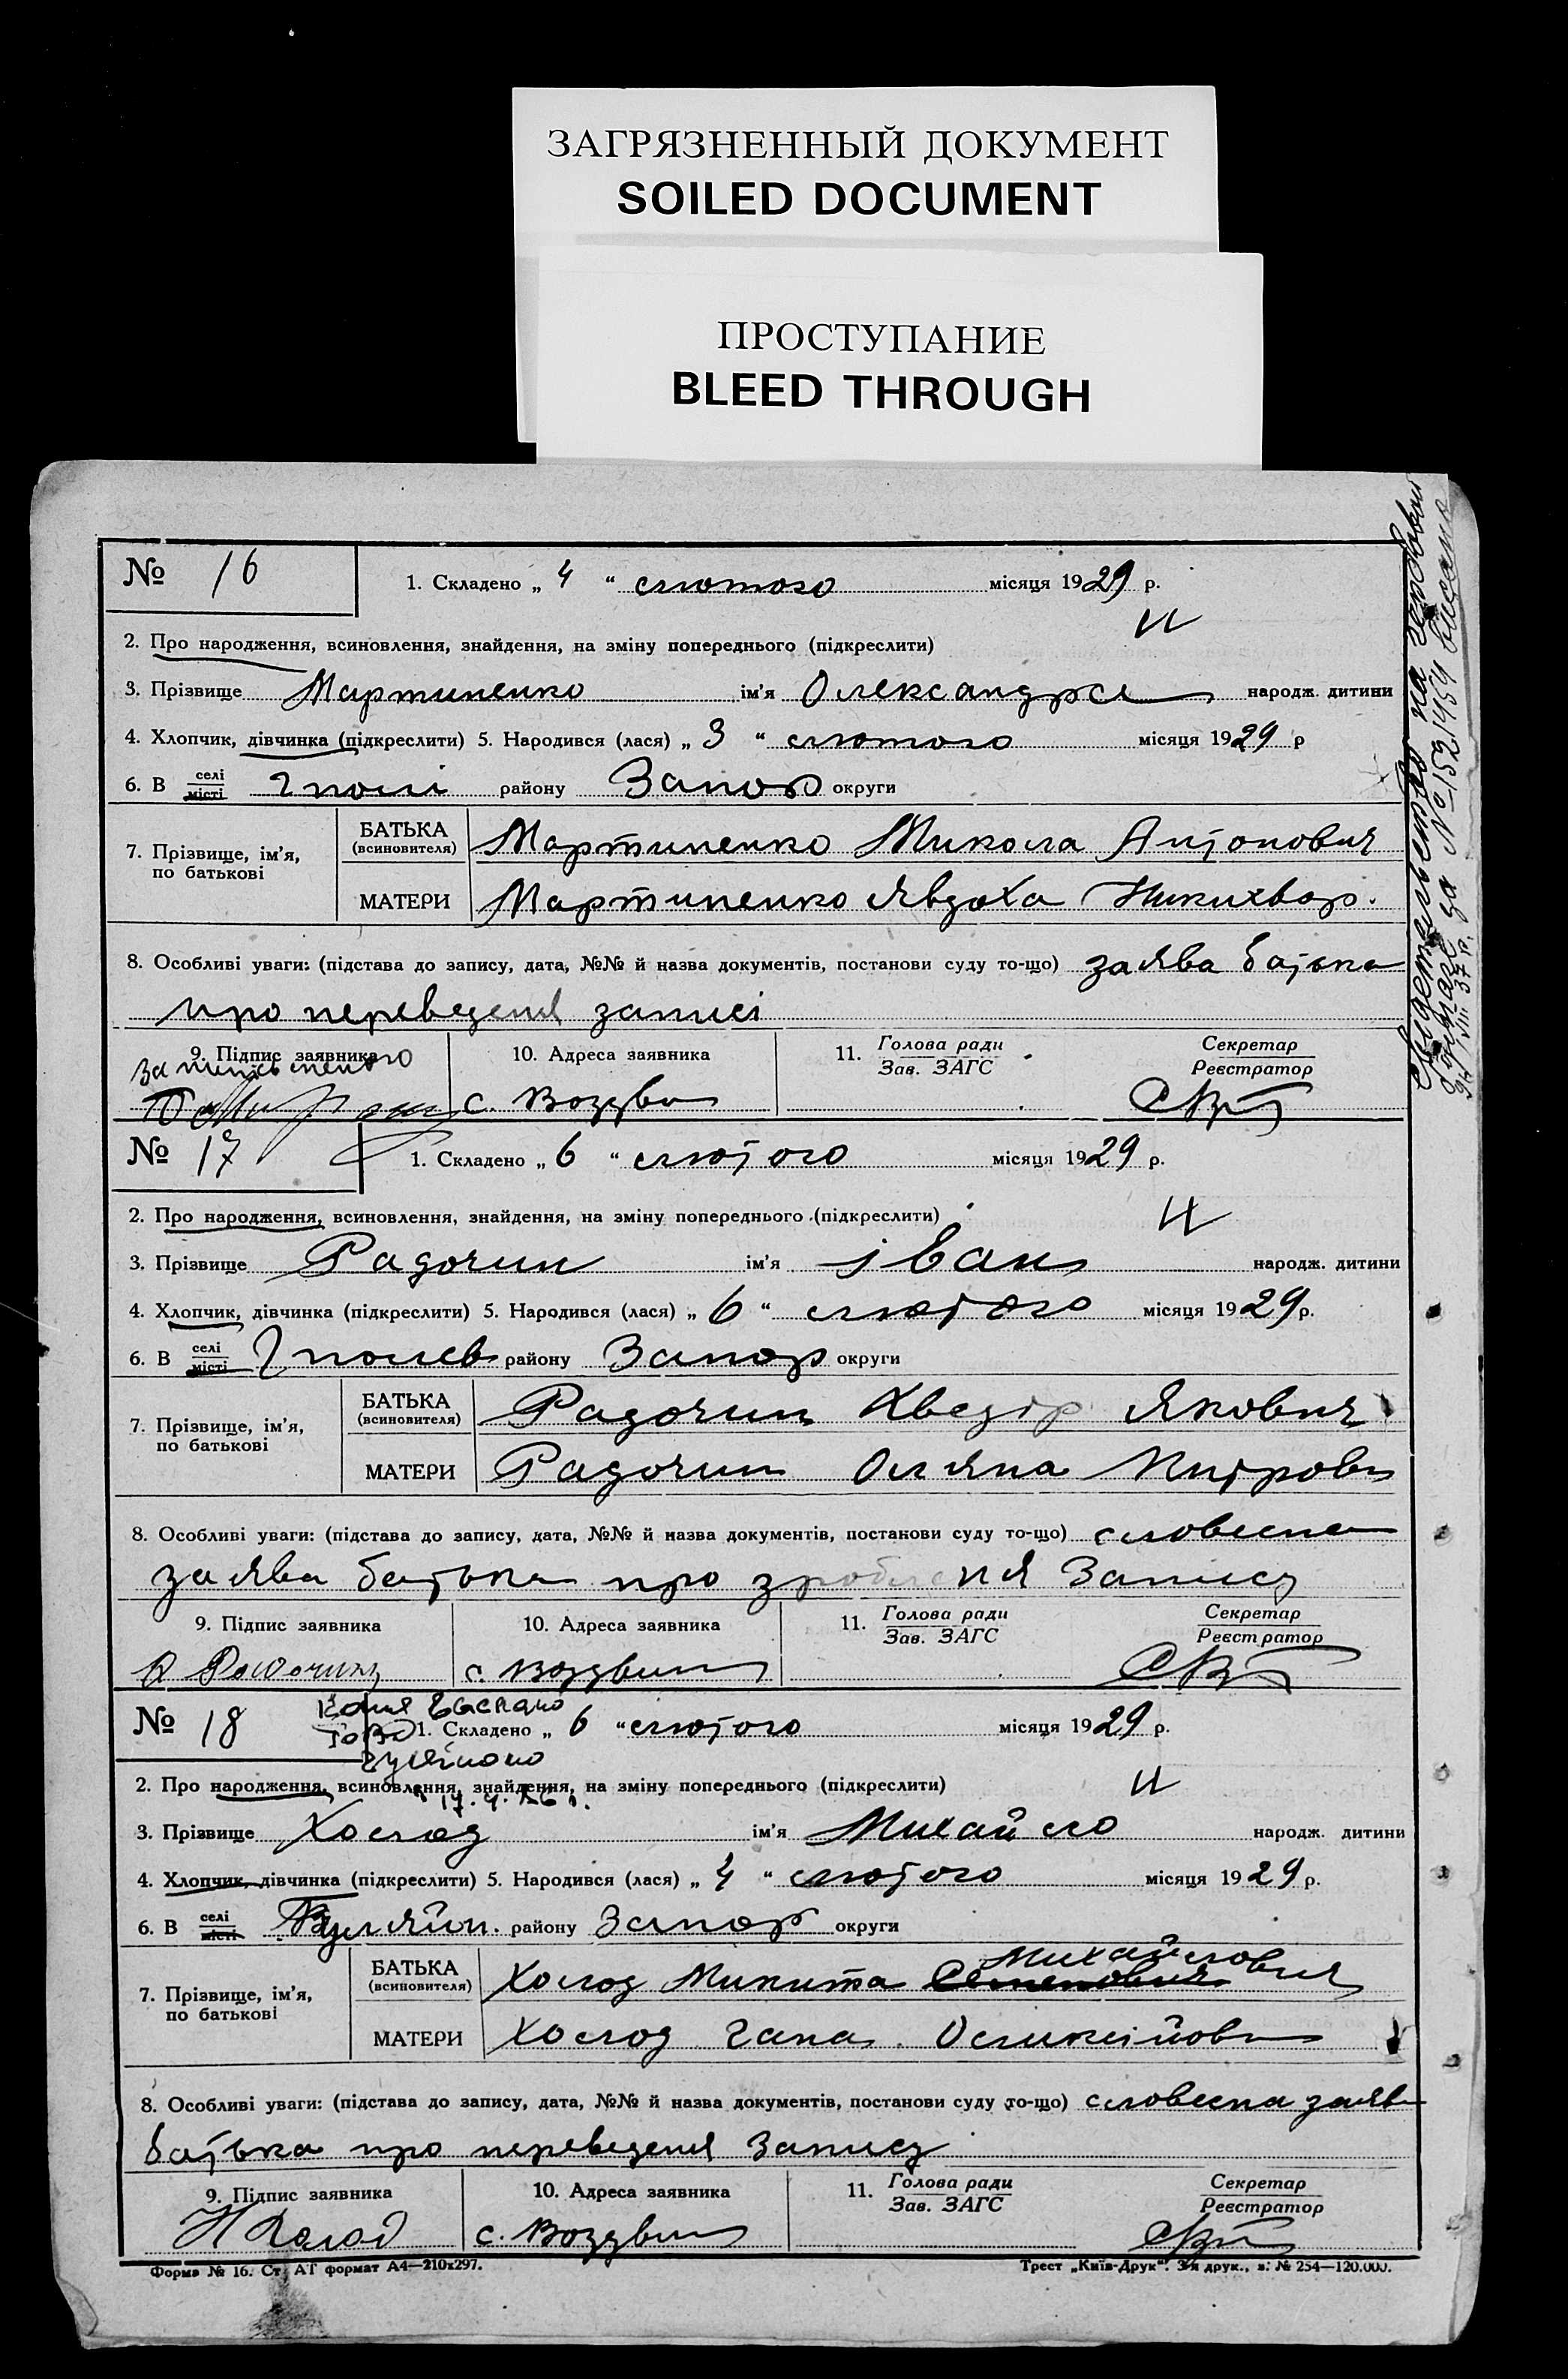 ЗАГРЯЗНЕННЫЙ ДОКУМЕНТ
SOILED DOCUMENT
ПРОСТУПАНИЕ
BLEED THROUGH
№ 16
1. Складено „ 4 “ лютого місяця 1929 р.
2. Про народження, всиновлення, знайдення, на зміну попереднього (підкреслити)
3. Прізвище Мартиненко ім’я Олександра народж. дитини
4. Хлопчик, дівчинка (підкреслити) 5. Народився (лася) „ 3 “ лютого місяця 1929 р
6. В селі місті Гполі району Запор округи
7. Прізвище, ім’я, по батькові
БАТЬКА (всиновителя) Мартиненко Микола Антонович
МАТЕРИ Мартиненко Явдоха Никихвор.
8. Особливі уваги: (підстава до запису, дата, №№ й назва документів, постанови суду то-що) заява батька
про переведеня записі
9. Підпис заявника 10. Адреса заявника 11. Голова ради Зав. ЗАГС Секретар Реєстратор
с. Воздви
№ 17
1. Складено „ 6 “ лютого місяця 1929 р.
2. Про народження, всиновлення, знайдення, на зміну попереднього (підкреслити)
3. Прізвище Радочин ім’я іван народж. дитини
4. Хлопчик, дівчинка (підкреслити) 5. Народився (лася) „ 6 “ лютого місяця 1929 р.
6. В селі місті Гполев району Запор округи
7. Прізвище, ім’я, по батькові
БАТЬКА (всиновителя) Радочин Хведір Якович
МАТЕРИ Радочин Оляна Митров
8. Особливі уваги: (підстава до запису, дата, №№ й назва документів, постанови суду то-що) словесна
заява батька про зроблення Запису
9. Підпис заявника 10. Адреса заявника 11. Голова ради Зав. ЗАГС Секретар Реєстратор
с. Воздвин
№ 18
Копия
1. Складено „ 6 “ лютого місяця 1929 р.
2. Про народження, всиновлення, знайдення, на зміну попереднього (підкреслити)
3. Прізвище Холод ім’я Михайло народж. дитини
4. Хлопчик, дівчинка (підкреслити) 5. Народився (лася) „ 4 “ лютого місяця 1929 р.
6. В селі місті Гуляйп. району Запор округи
7. Прізвище, ім’я, по батькові
Михайлович
БАТЬКА (всиновителя) Холод Микита Семенович
МАТЕРИ Холод Гана Оликсійов
8. Особливі уваги: (підстава до запису, дата, №№ й назва документів, постанови суду то-що) словесна заява
батька про переведеня Запису
9. Підпис заявника 10. Адреса заявника 11. Голова ради Зав. ЗАГС Секретар Реєстратор
Н Холод с. Воздвин
Форма № 16. Ст. АТ формат А4—210х297.
Трест „Київ-Друк“. 3-я друк., з. № 254—120.000.